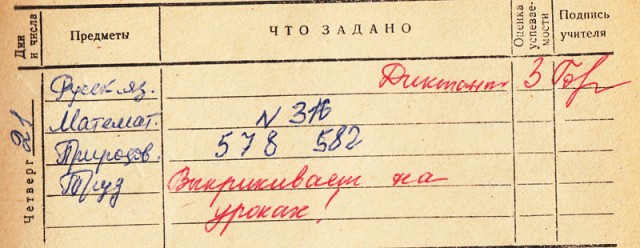 Дни и числа Предметы ЧТО ЗАДАНО Оценка успевае-мости Подпись учителя
Четверг 21
Русск яз. Диктант 3
Математ. N 316
Природов. 578 582
Труд Выкрикивает на
уроках!